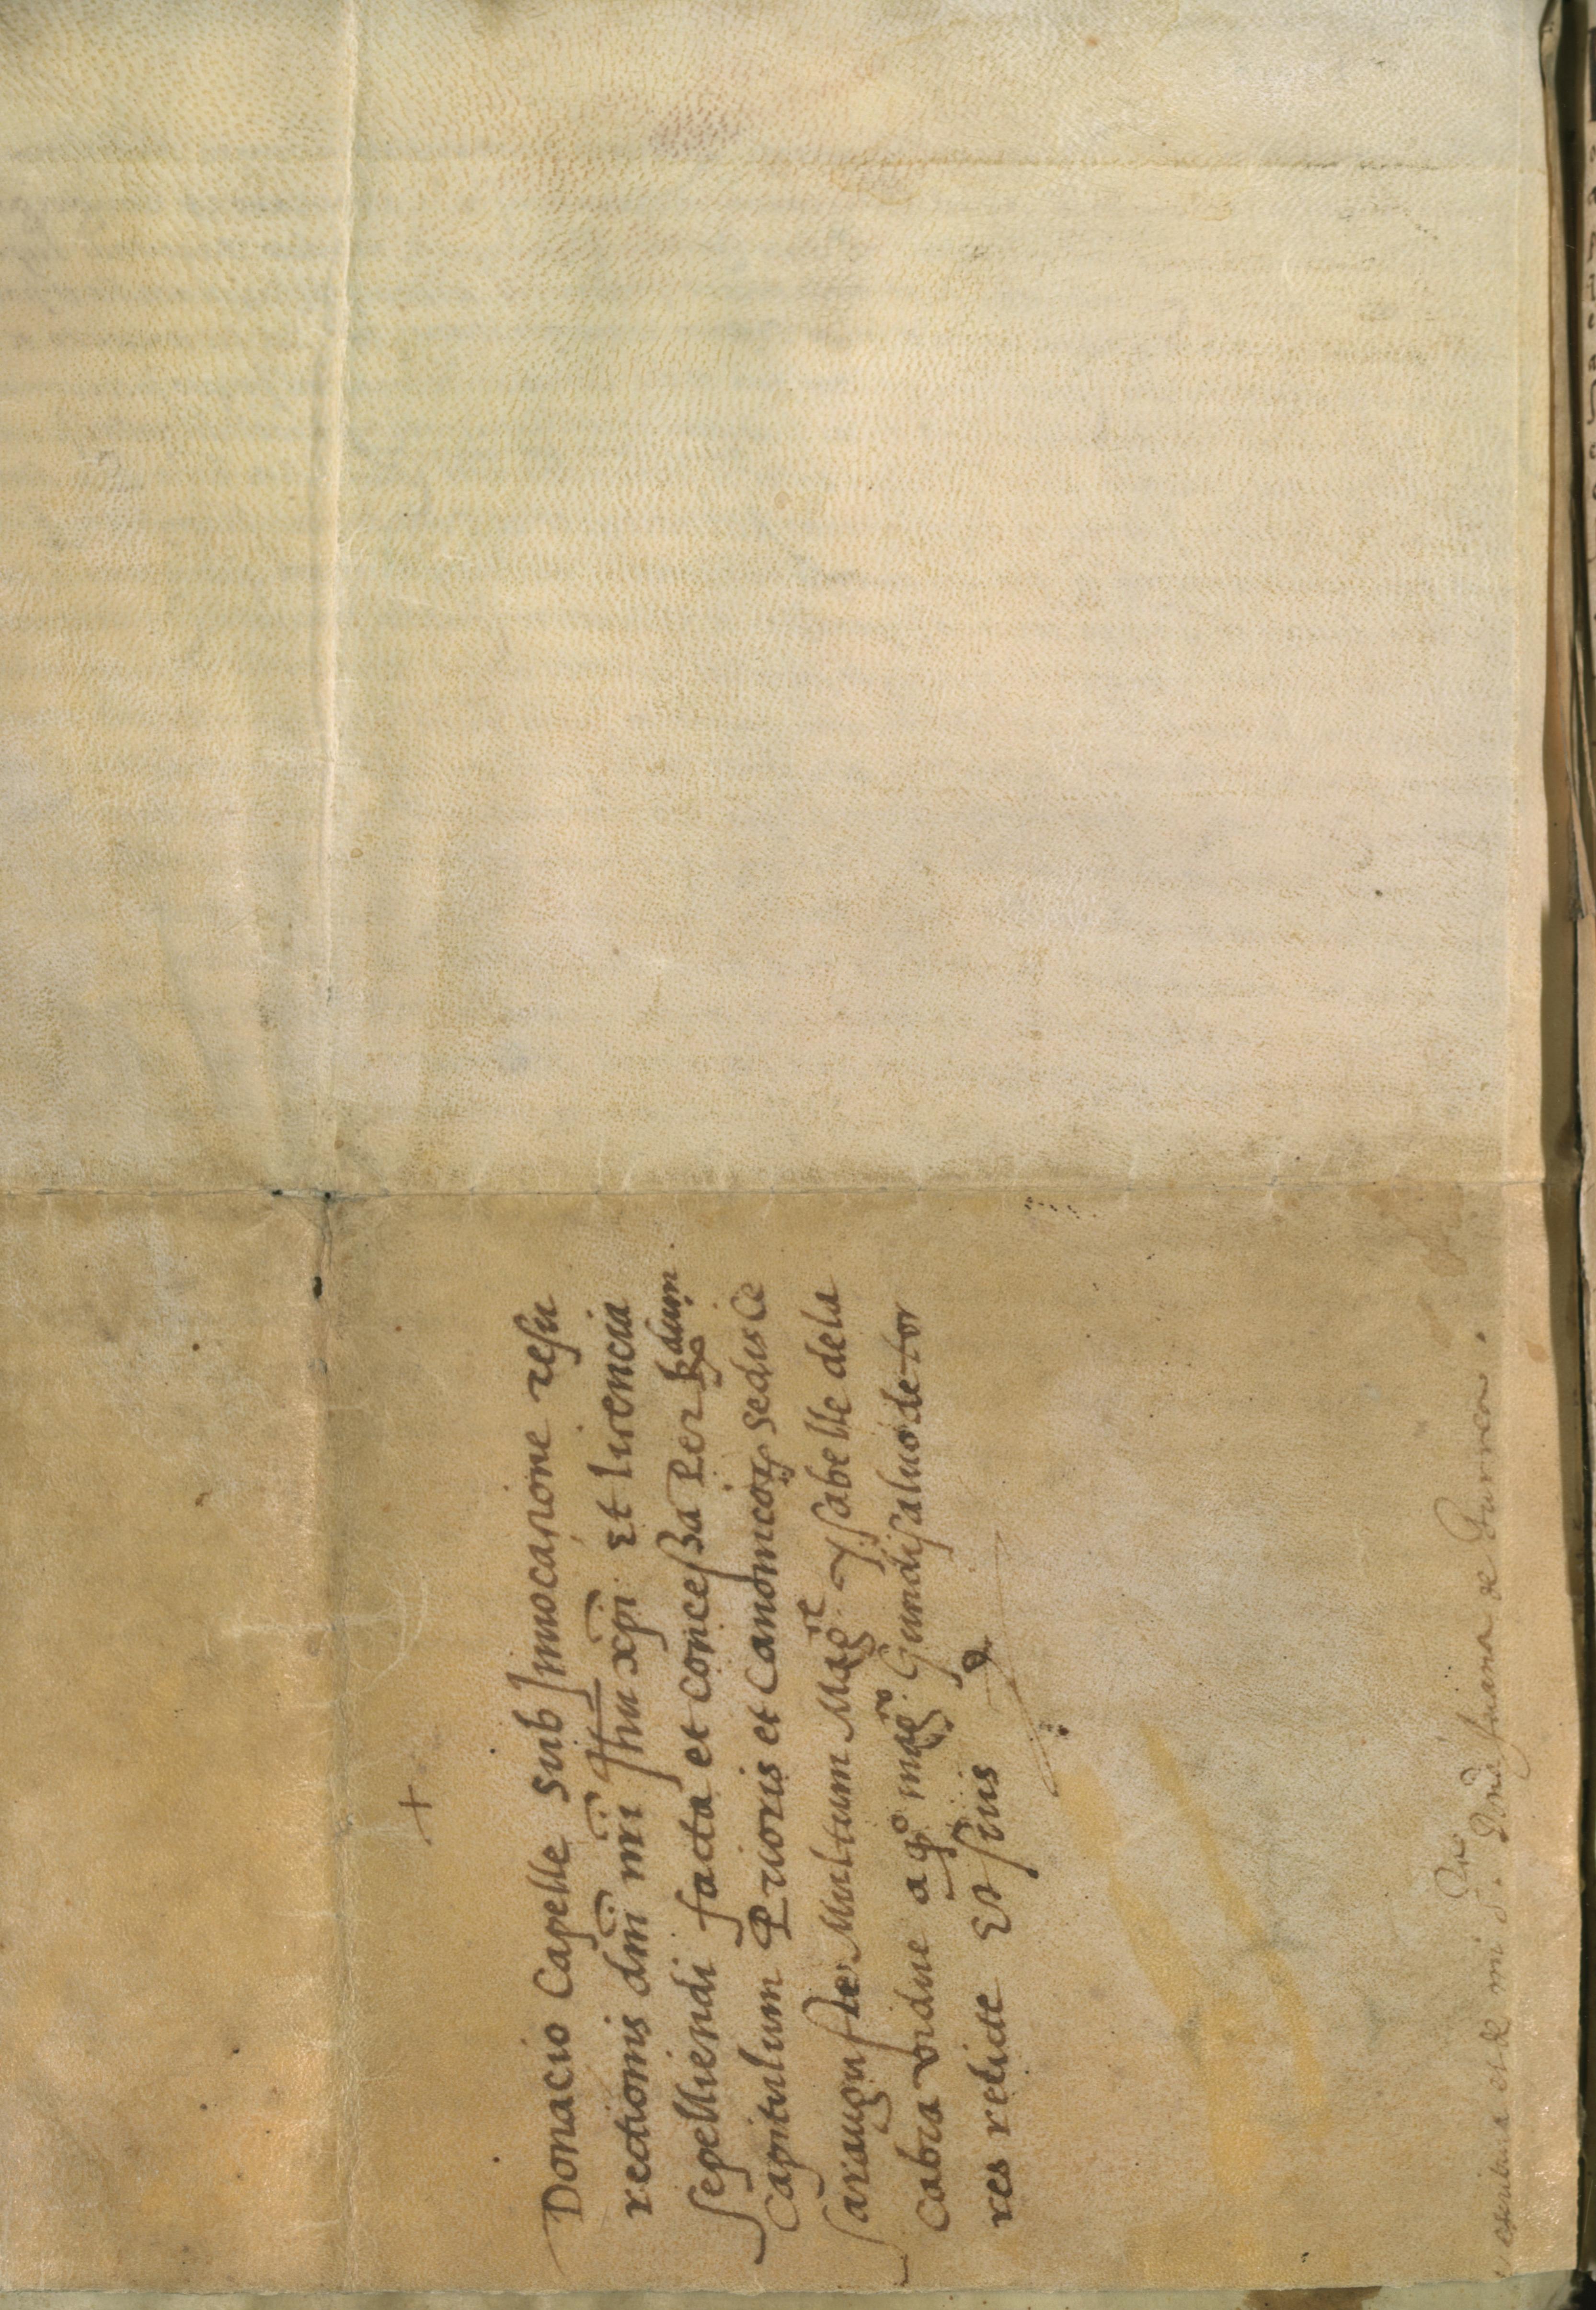 +
Donacio Capelle sub Jnuocacione resu
rectionis dnĩ nrĩ Jhu xpĩ Et licencia
sepelliendi facta et concessa Per Rdum
Capitulum Prioris et Canonicoꝝ sedis Ce
saraugustẽ Multum Magce ysabelle dela
Cabra vidue a qo magco Gundisaluo de tor
res relicte Et suis
escritura de mi Sra Dona Juana de Gurrea.